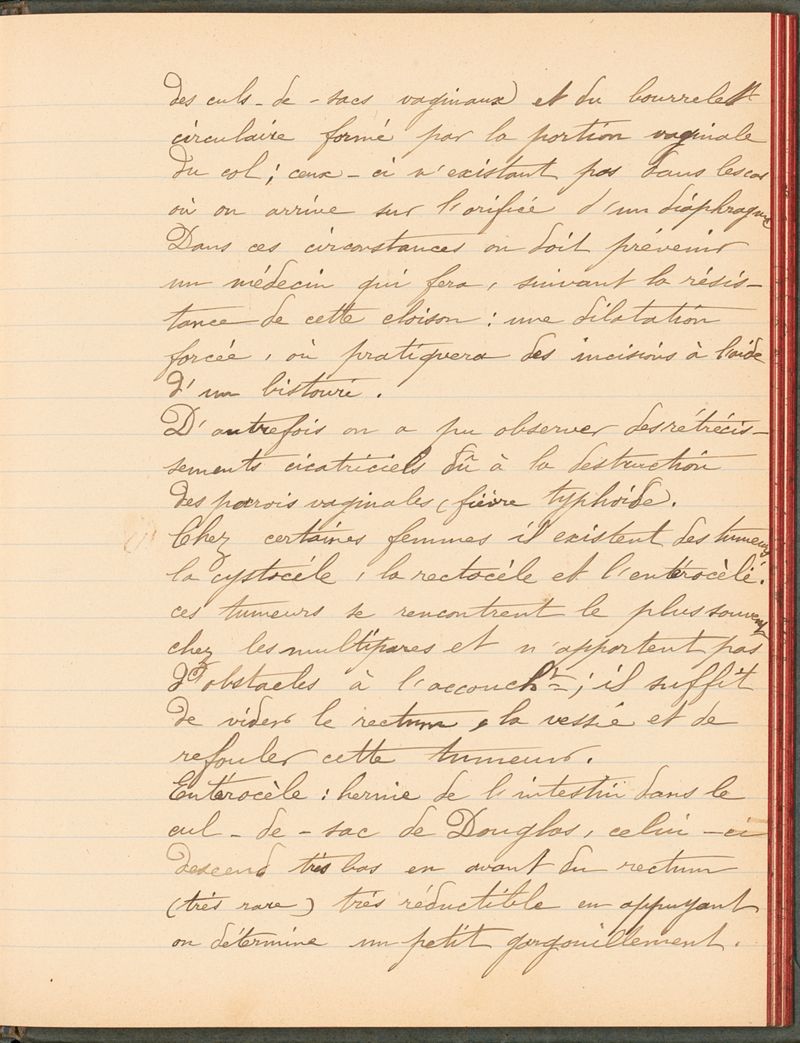 des culs-de-sacs vaginaux) et du bourrelet
circulaire formé par la portion vaginale
du col; ceux-ci n'existant pas dans les cas
où on arrive sur l'orifice d'un diaphragme
Dans ces circonstances on doit prévenir
un médecin qui fera, suivant la résis-
tance de cette cloison : une dilatation
forcée, où pratiquera des incisions à l'aide
d'un bistouri.
D'autrefois on a pu observer des rétrécis-
sements cicatriciels dû à la destruction
des parrois vaginales (fièvre typhoïde.
Chez certaines femmes il existent des tumeurs
la cystocèle, la rectocèle et l'entérocèle.
ces tumeurs se rencontrent le plus souvent
chez les multipares et n'apportent pas
d'obstacles à l'accouch^t; il suffit
de vider le rectum, la vessie et de
refouler cette tumeur.
Entérocèle : hernie de l'intestin dans le
cul-de-sac de Douglas, celui-ci
descend très bas en avant du rectum
(très rare) très réductible en appuyant
on détermine un petit gargouillement.